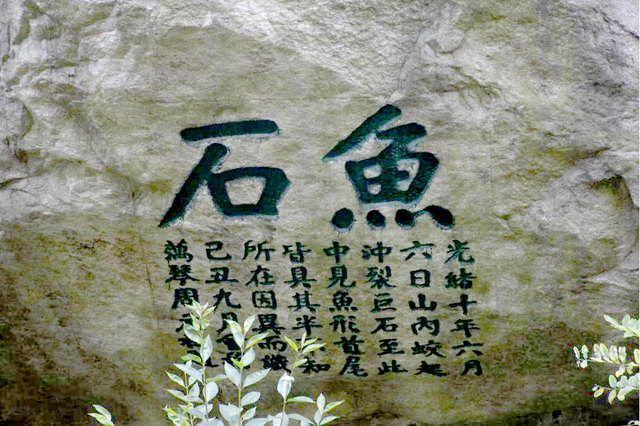 魚石
光緒十年六月
六日山内蛟起
冲裂巨石至此
中見魚形首尾
皆具其半不知
所在因異而
己丑九月
鴻擎周